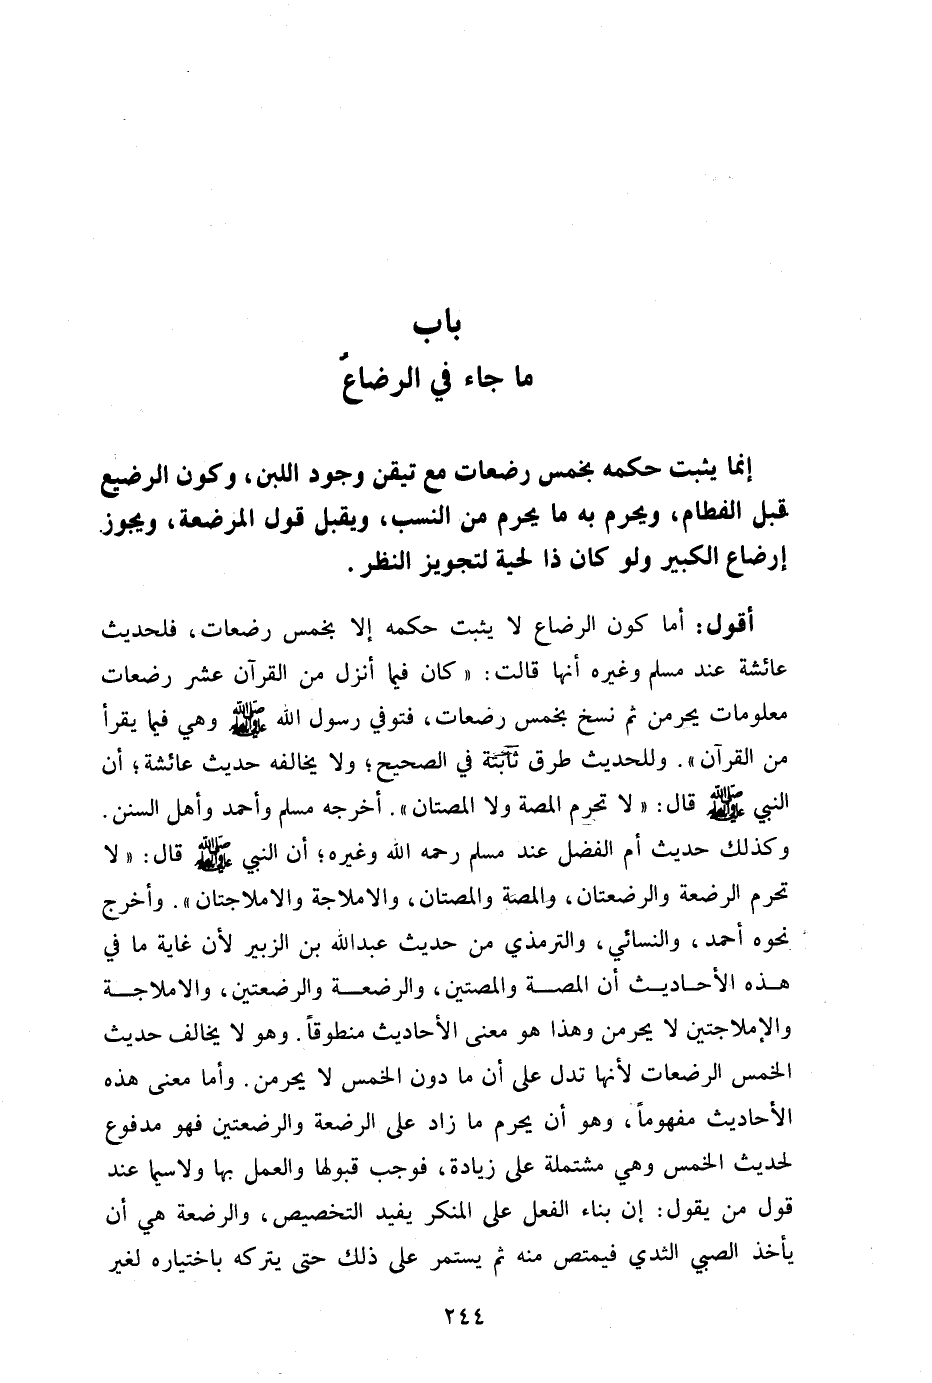 باب
ما جاء في الرضاعُ
إنما يثبت حكمه بخمس رضعات مع تيقن وجود اللبن، وكون الرضيع
قبل الفطام، ويحرم به ما يحرم من النسب، ويقبل قول المرضعة، ويجوز
إرضاع الكبير ولو كان ذا لحية لتجويز النظر.
أقول: أما كون الرضاع لا يثبت حكمه إلا بخمس رضعات، فلحديث
عائشة عند مسلم وغيره أنها قالت: «كان فيما أنزل من القرآن عشر رضعات
معلومات يحرمن ثم نسخ بخمس رضعات، فتوفي رسول الله ﷺ وهي فيما يقرأ
من القرآن». وللحديث طرق ثابتة في الصحيح؛ ولا يخالفه حديث عائشة؛ أن
النبي ﷺ قال: «لا تحرم المصة ولا المصتان». أخرجه مسلم وأحمد وأهل السنن.
وكذلك حديث أم الفضل عند مسلم رحمه الله وغيره؛ أن النبي ﷺ قال: «لا
تحرم الرضعة والرضعتان، والمصة والمصتان، والاملاجة والاملاجتان». وأخرج
نحوه أحمد، والنسائي، والترمذي من حديث عبدالله بن الزبير لأن غاية ما في
هذه الأحاديث أن المصة والمصتين، والرضعة والرضعتين، والاملاجة
والإملاجتين لا يحرمن وهذا هو معنى الأحاديث منطوقاً. وهو لا يخالف حديث
الخمس الرضعات لأنها تدل على أن ما دون الخمس لا يحرمن. وأما معنى هذه
الأحاديث مفهوماً، وهو أن يحرم ما زاد على الرضعة والرضعتين فهو مدفوع
لحديث الخمس وهي مشتملة على زيادة، فوجب قبولها والعمل بها ولاسيما عند
قول من يقول: إن بناء الفعل على المنكر يفيد التخصيص، والرضعة هي أن
يأخذ الصبي الثدي فيمتص منه ثم يستمر على ذلك حتى يتركه باختياره لغير
٢٤٤